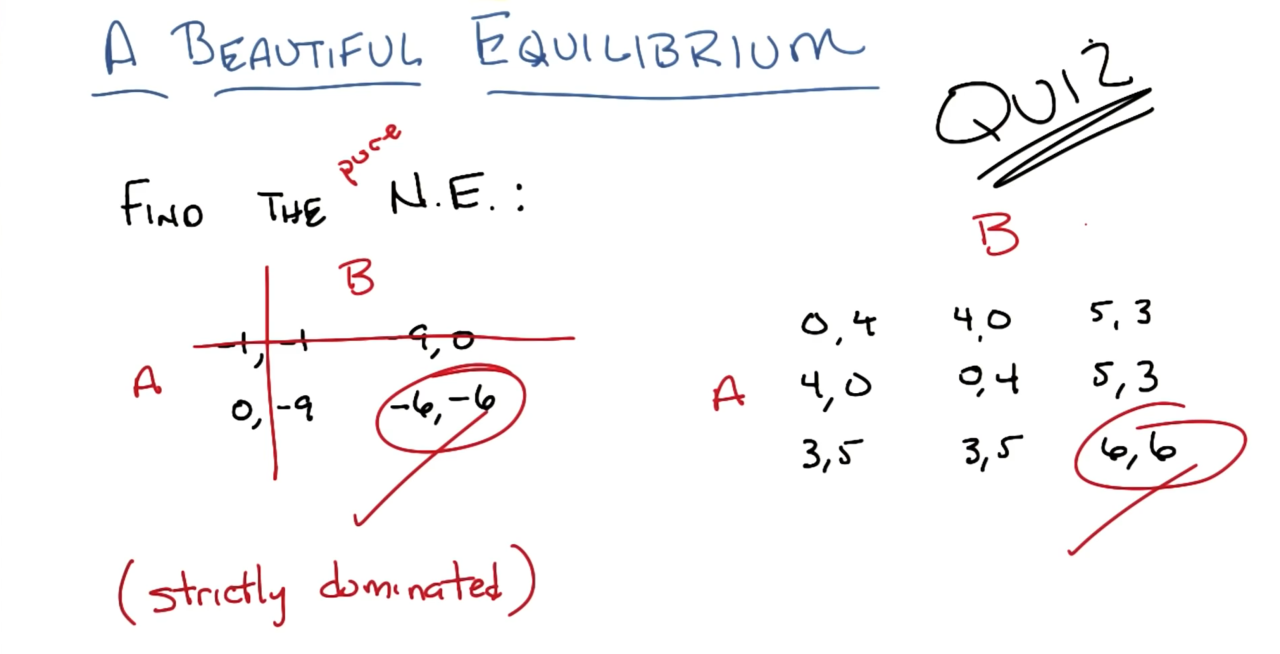 A BEAUTIFUL EQUILIBRIUM
QUIZ
pure
FIND THE N.E.:
B
-1, -1 -9, 0
A
0, -9 -6, -6
(strictly dominated)
B
0, 4 4, 0 5, 3
A 4, 0 0, 4 5, 3
3, 5 3, 5 6, 6